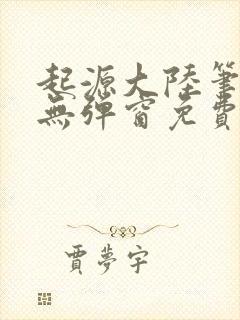 起源大陸筆
無彈窗免費
賈夢宇